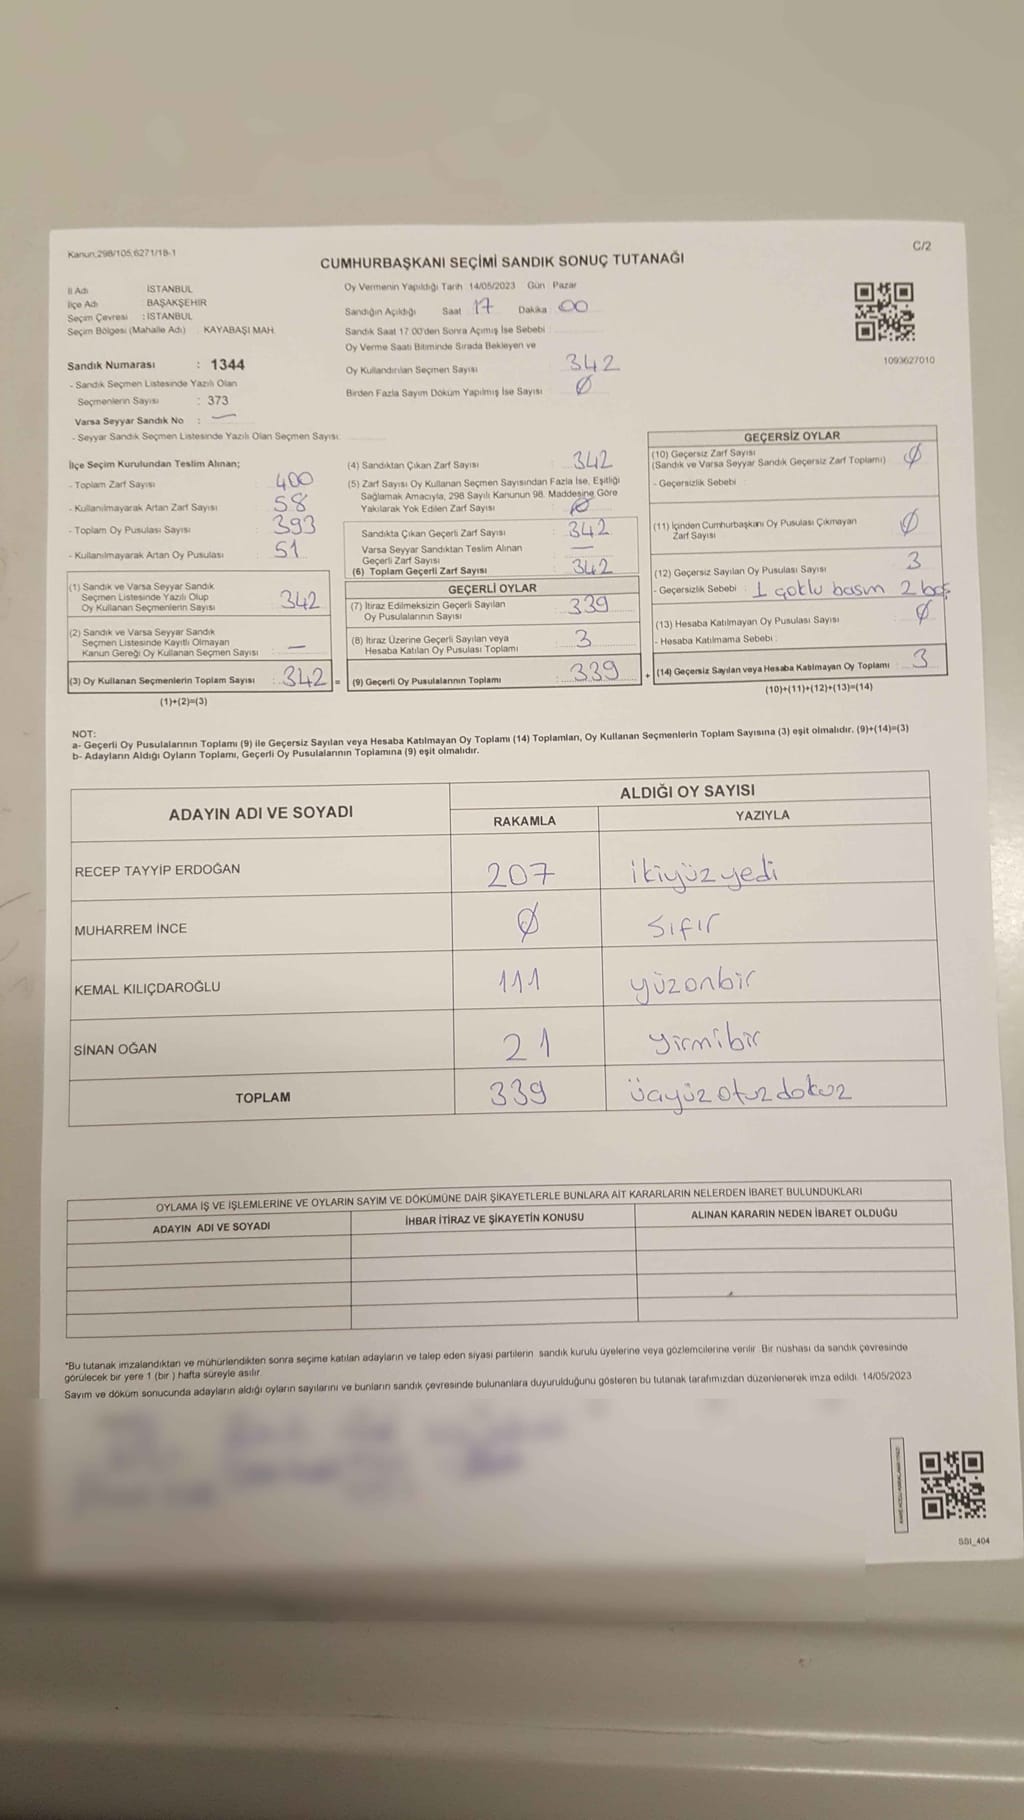 Kanun,298/105,6271/18-1
C/2
CUMHURBAŞKANI SEÇİMİ SANDIK SONUÇ TUTANAĞI
İl Adı İSTANBUL
İlçe Adı BAŞAKŞEHİR
Seçim Çevresi : İSTANBUL
Seçim Bölgesi (Mahalle Adı) : KAYABAŞI MAH.
Sandık Numarası : 1344
- Sandık Seçmen Listesinde Yazılı Olan
Seçmenlerin Sayısı : 373
Varsa Seyyar Sandık No : —
- Seyyar Sandık Seçmen Listesinde Yazılı Olan Seçmen Sayısı:
Oy Vermenin Yapıldığı Tarih 14/05/2023 Gün Pazar
Sandığın Açıldığı Saat 17 Dakika 00
Sandık Saat 17.00'den Sonra Açımış İse Sebebi
Oy Verme Saati Bitiminde Sırada Bekleyen ve
Oy Kullandırılan Seçmen Sayısı 342
Birden Fazla Sayım Döküm Yapılmış İse Sayısı Ø
1093627010
İlçe Seçim Kurulundan Teslim Alınan;
- Toplam Zarf Sayısı 400
- Kullanılmayarak Artan Zarf Sayısı 58
- Toplam Oy Pusulası Sayısı 393
- Kullanılmayarak Artan Oy Pusulası 51
(1) Sandık ve Varsa Seyyar Sandık
Seçmen Listesinde Yazılı Olup
Oy Kullanan Seçmenlerin Sayısı 342
(2) Sandık ve Varsa Seyyar Sandık
Seçmen Listesinde Kayıtlı Olmayan
Kanun Gereği Oy Kullanan Seçmen Sayısı : —
(3) Oy Kullanan Seçmenlerin Toplam Sayısı : 342 =
(1)+(2)=(3)
(4) Sandıktan Çıkan Zarf Sayısı : 342
(5) Zarf Sayısı Oy Kullanan Seçmen Sayısından Fazla İse, Eşitliği
Sağlamak Amacıyla, 298 Sayılı Kanunun 98. Maddesine Göre
Yakılarak Yok Edilen Zarf Sayısı : Ø
Sandıkta Çıkan Geçerli Zarf Sayısı : 342
Varsa Seyyar Sandıktan Teslim Alınan
Geçerli Zarf Sayısı —
(6) Toplam Geçerli Zarf Sayısı 342
GEÇERLİ OYLAR
(7) İtiraz Edilmeksizin Geçerli Sayılan
Oy Pusulalarının Sayısı 339
(8) İtiraz Üzerine Geçerli Sayılan veya
Hesaba Katılan Oy Pusulası Toplamı 3
(9) Geçerli Oy Pusulalarının Toplamı 339 +
GEÇERSİZ OYLAR
(10) Geçersiz Zarf Sayısı
(Sandık ve Varsa Seyyar Sandık Geçersiz Zarf Toplamı) : Ø
- Geçersizlik Sebebi :
(11) İçinden Cumhurbaşkanı Oy Pusulası Çıkmayan
Zarf Sayısı Ø
(12) Geçersiz Sayılan Oy Pusulası Sayısı 3
- Geçersizlik Sebebi : 1 çoklu basım 2 boş
(13) Hesaba Katılmayan Oy Pusulası Sayısı Ø
- Hesaba Katılmama Sebebi :
(14) Geçersiz Sayılan veya Hesaba Katılmayan Oy Toplamı : 3
(10)+(11)+(12)+(13)=(14)
NOT:
a- Geçerli Oy Pusulalarının Toplamı (9) ile Geçersiz Sayılan veya Hesaba Katılmayan Oy Toplamı (14) Toplamları, Oy Kullanan Seçmenlerin Toplam Sayısına (3) eşit olmalıdır. (9)+(14)=(3)
b- Adayların Aldığı Oyların Toplamı, Geçerli Oy Pusulalarının Toplamına (9) eşit olmalıdır.
ADAYIN ADI VE SOYADI
ALDIĞI OY SAYISI
RAKAMLA YAZIYLA
RECEP TAYYİP ERDOĞAN 207 ikiyüzyedi
MUHARREM İNCE Ø sıfır
KEMAL KILIÇDAROĞLU 111 yüzonbir
SİNAN OĞAN 21 yirmibir
TOPLAM 339 üçyüzotuzdokuz
OYLAMA İŞ VE İŞLEMLERİNE VE OYLARIN SAYIM VE DÖKÜMÜNE DAİR ŞİKAYETLERLE BUNLARA AİT KARARLARIN NELERDEN İBARET BULUNDUKLARI
ADAYIN ADI VE SOYADI İHBAR İTİRAZ VE ŞİKAYETİN KONUSU ALINAN KARARIN NEDEN İBARET OLDUĞU
*Bu tutanak imzalandıktan ve mühürlendikten sonra seçime katılan adayların ve talep eden siyasi partilerin sandık kurulu üyelerine veya gözlemcilerine verilir. Bir nüshası da sandık çevresinde
görülecek bir yere 1 (bir ) hafta süreyle asılır.
Sayım ve döküm sonucunda adayların aldığı oyların sayılarını ve bunların sandık çevresinde bulunanlara duyurulduğunu gösteren bu tutanak tarafımızdan düzenlenerek imza edildi. 14/05/2023
SSI_404